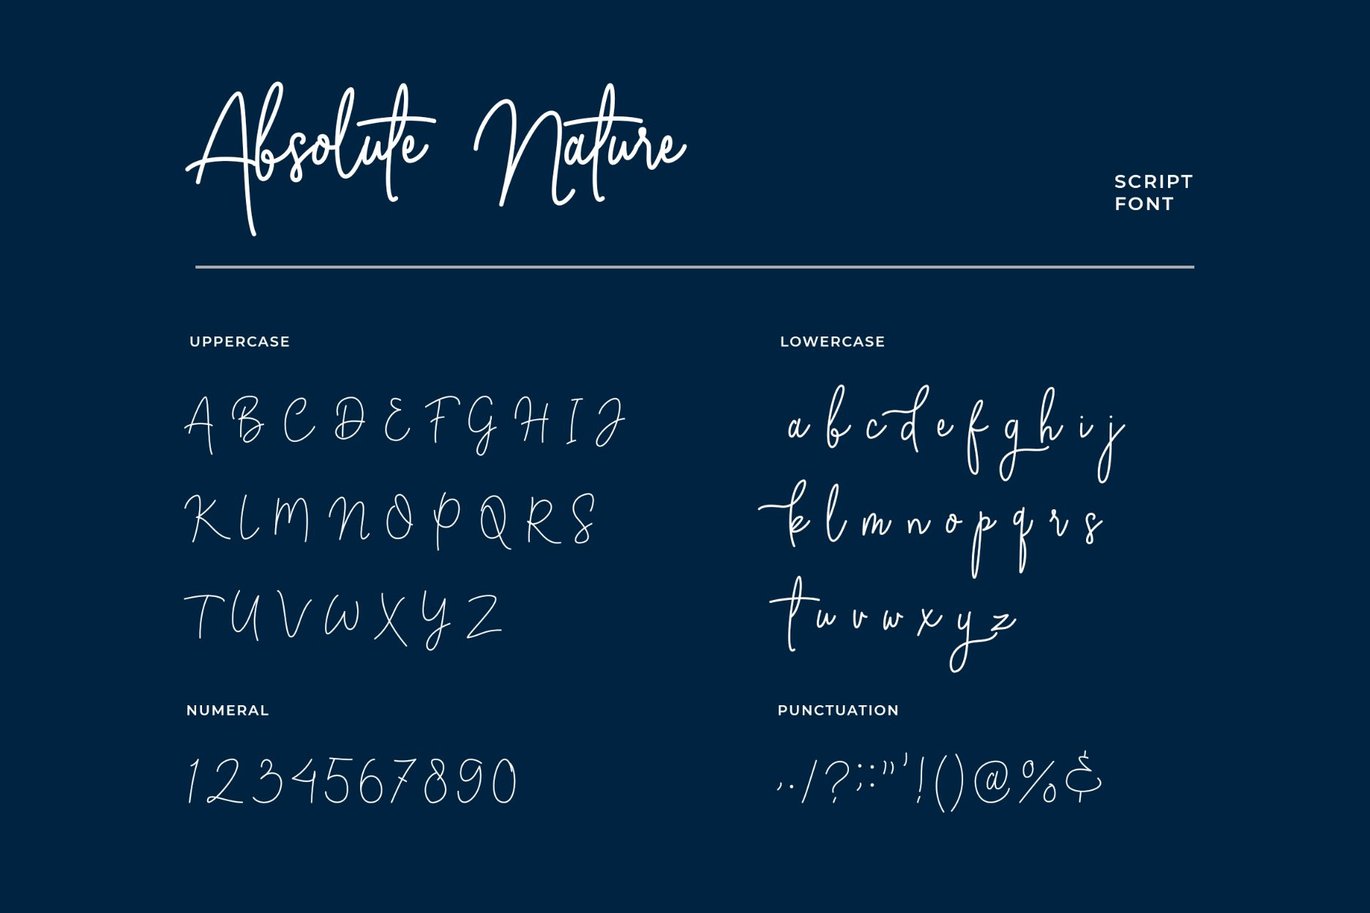 Absolute Nature
SCRIPT
FONT
UPPERCASE
A B C D E F G H I J
K L M N O P Q R S
T U V W X Y Z
LOWERCASE
a b c d e f g h i j
k l m n o p q r s
t u v w x y z
NUMERAL
1234567890
PUNCTUATION
,./?;:"'!()@%&